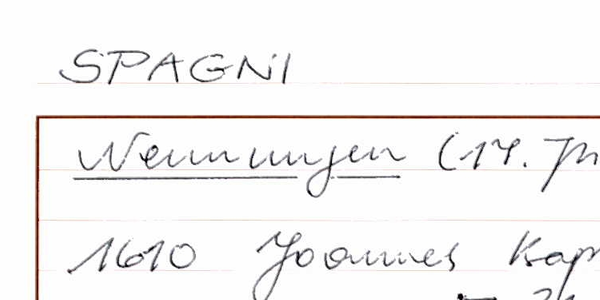 SPAGNI
Nennungen (17. Jh
1610 Joannes Kap